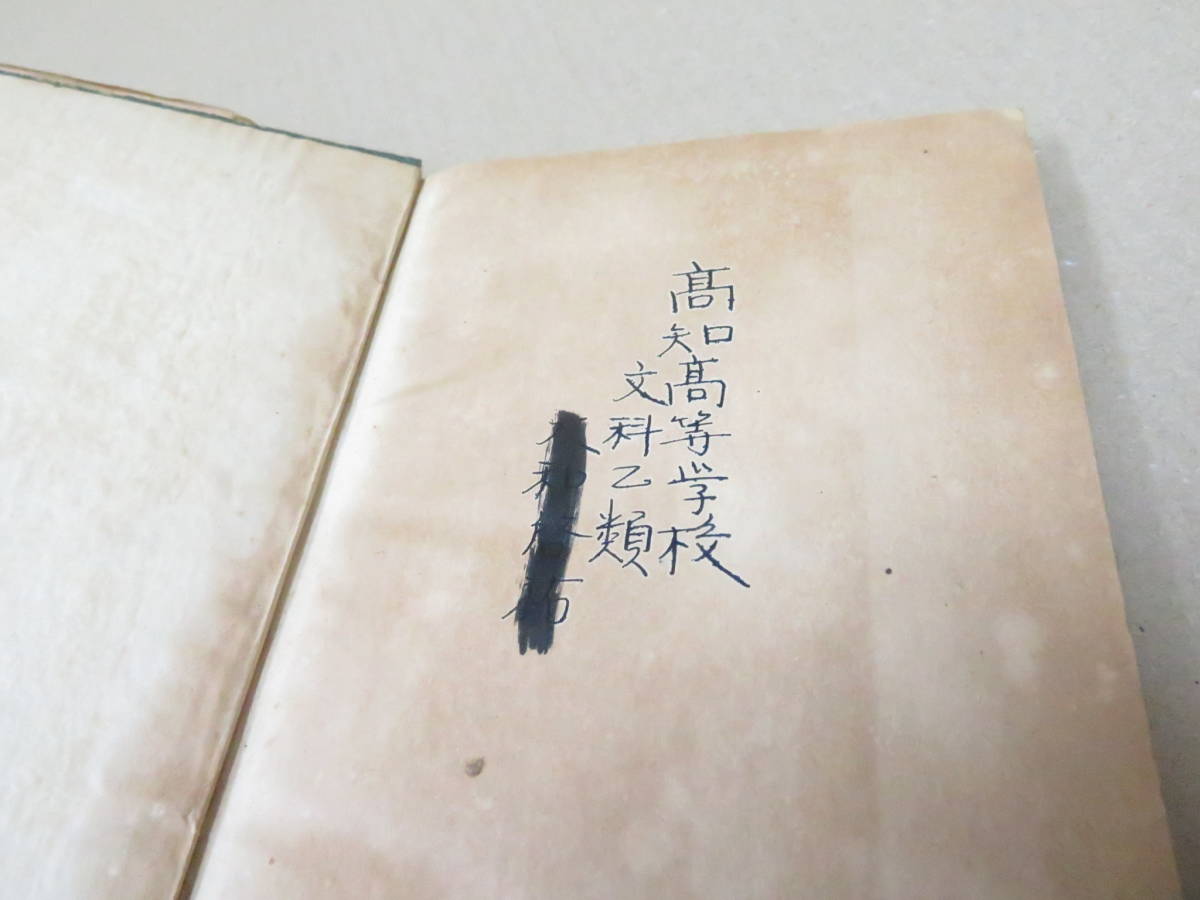 髙知髙等学校
文科乙類